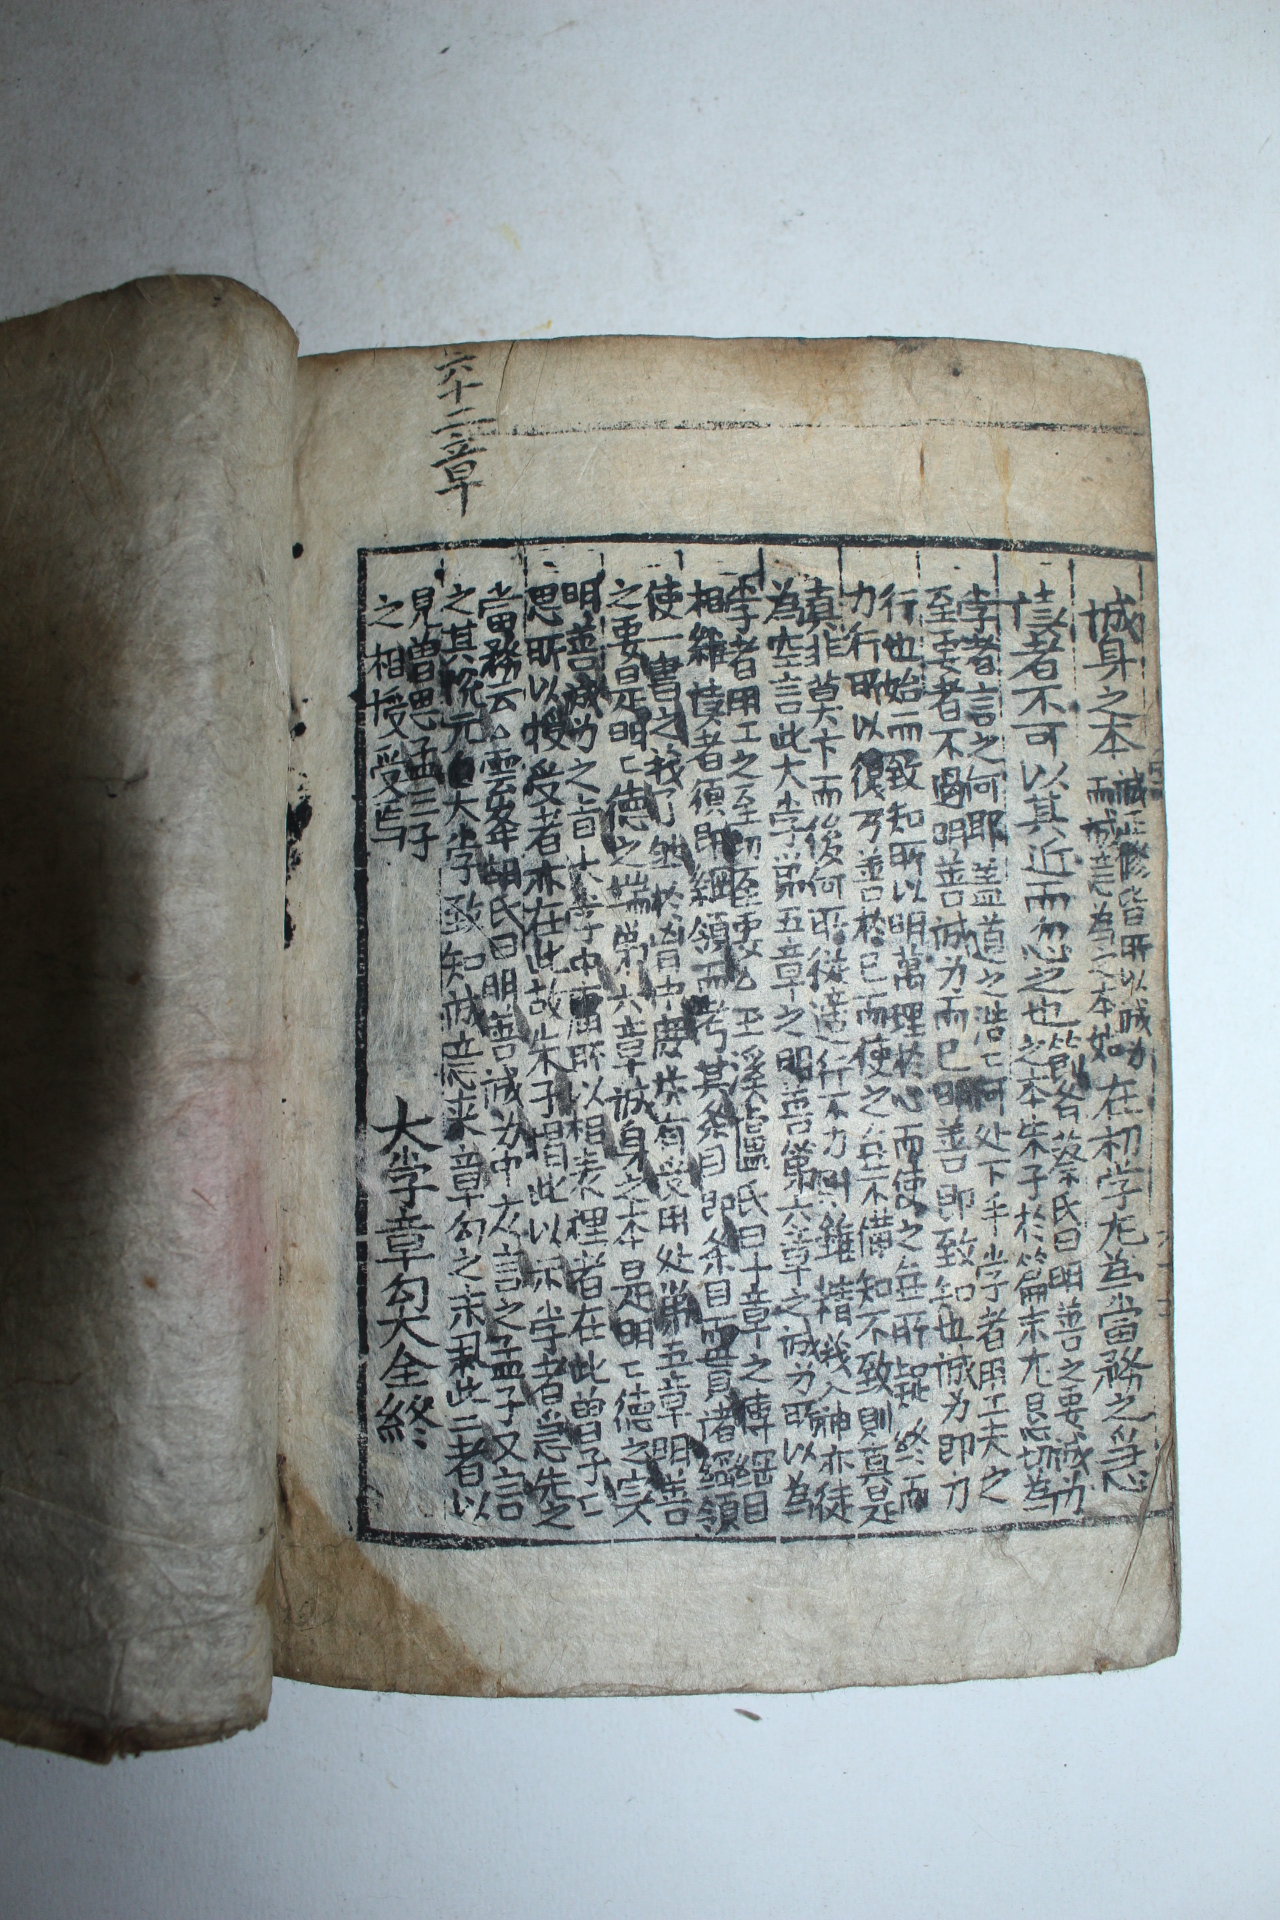 六十二章
誠身之本
誠正脩皆所以誠身
而誠意為之本始
在初学尤為當務之急
讀者不可以其近而忽之也
節齋蔡氏曰明善之要誠身
之本朱子於篇末尤懇切為
学者言之何耶盖道之浩〻何处下手学者用工夫之
至要者不過明善誠身而已明善即致知也誠身即力
行也始而致知所以明萬理於心而使之無所疑終而
力行所以復万善於己而使之無不備知不致則真是
真非莫卞而後何所從適行不力則雖精義入神亦徒
為空言此大学第五章之明善第六章之誠身所以為
学者用工之至切至要也玉溪盧氏曰十章之傳綱目
相維讀者須即綱領而考其条目即条目而貫諸綱領
使一書之義了然於胷中庶㡬有受用处第五章明善
之要是明〻德之端第六章誠身之本是明〻德之实
明善誠身之旨大学中庸所以相表裡者在此曾子子
思所以授受者亦在此故朱子揭此以示学者急先之
當務云〻雲峯胡氏曰明善誠身中庸言之孟子又言
之其説元自大学致知誠意来章句之末揭此二者以
見曾思孟三子
之相授受焉
大学章句大全終